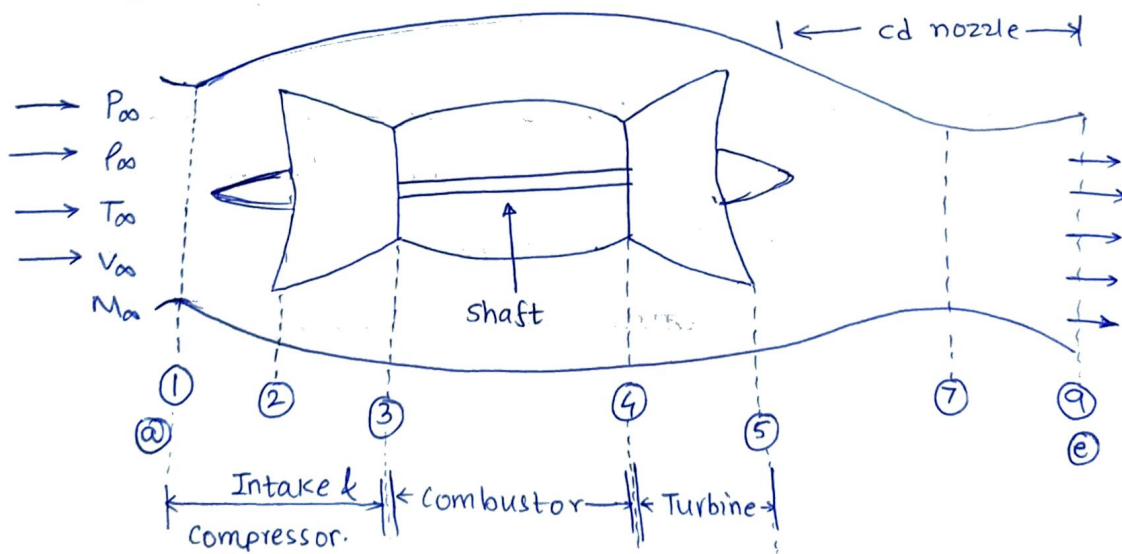 cd nozzle
P∞
ρ∞
T∞
V∞
M∞
Shaft
1
2
3
4
5
7
9
a
e
Intake &
Compressor.
Combustor
Turbine